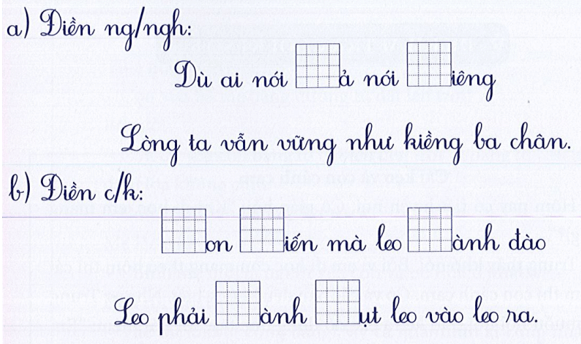 a) Điền ng/ngh:
Dù ai nói ả nói iêng
Lòng ta vẫn vững như kiềng ba chân.
b) Điền c/k:
on iến mà leo ành đào
Leo phải ành ụt leo vào leo ra.